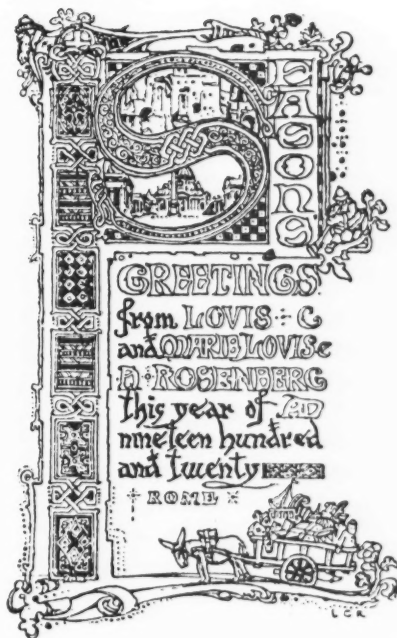 SEASONS
GREETINGS
from LOUIS C
and MARIE LOUISE
H ROSENBERG
this year of AD
nineteen hundred
and twenty
ROME
LCR